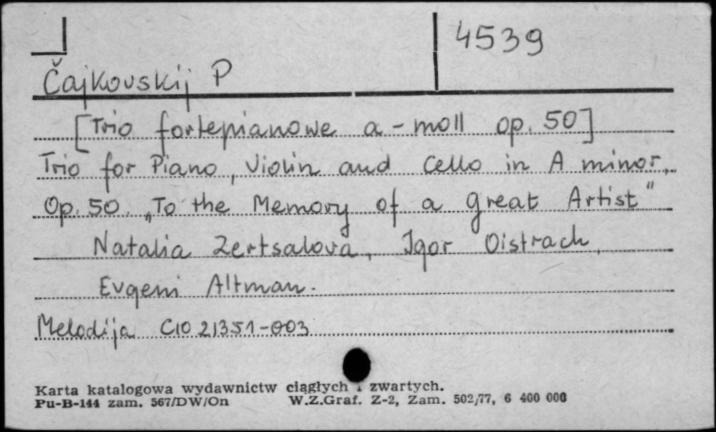 4539
Čajkovskij P
[Trio fortepianowe a-moll op. 50]
Trio for Piano, Violin and Cello in A minor,
Op. 50. „To the Memory of a Great Artist"
Natalia Zertsalova, Igor Oistrach,
Evgeni Altman.
Melodija C10 21351-003
Karta katalogowa wydawnictw ciągłych i zwartych.
Pu-B-144 zam. 567/DW/On W.Z.Graf. Z-2, Zam. 502/77, 6 400 000